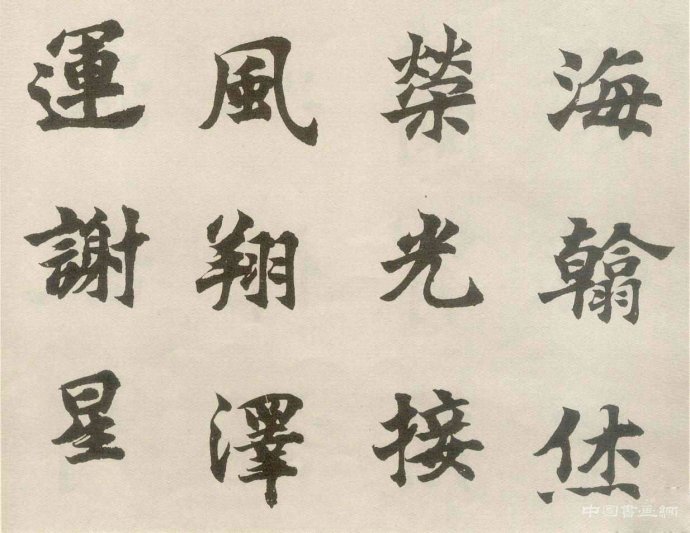 海翰烋
榮光接
風翔澤
運謝星
中国書画網